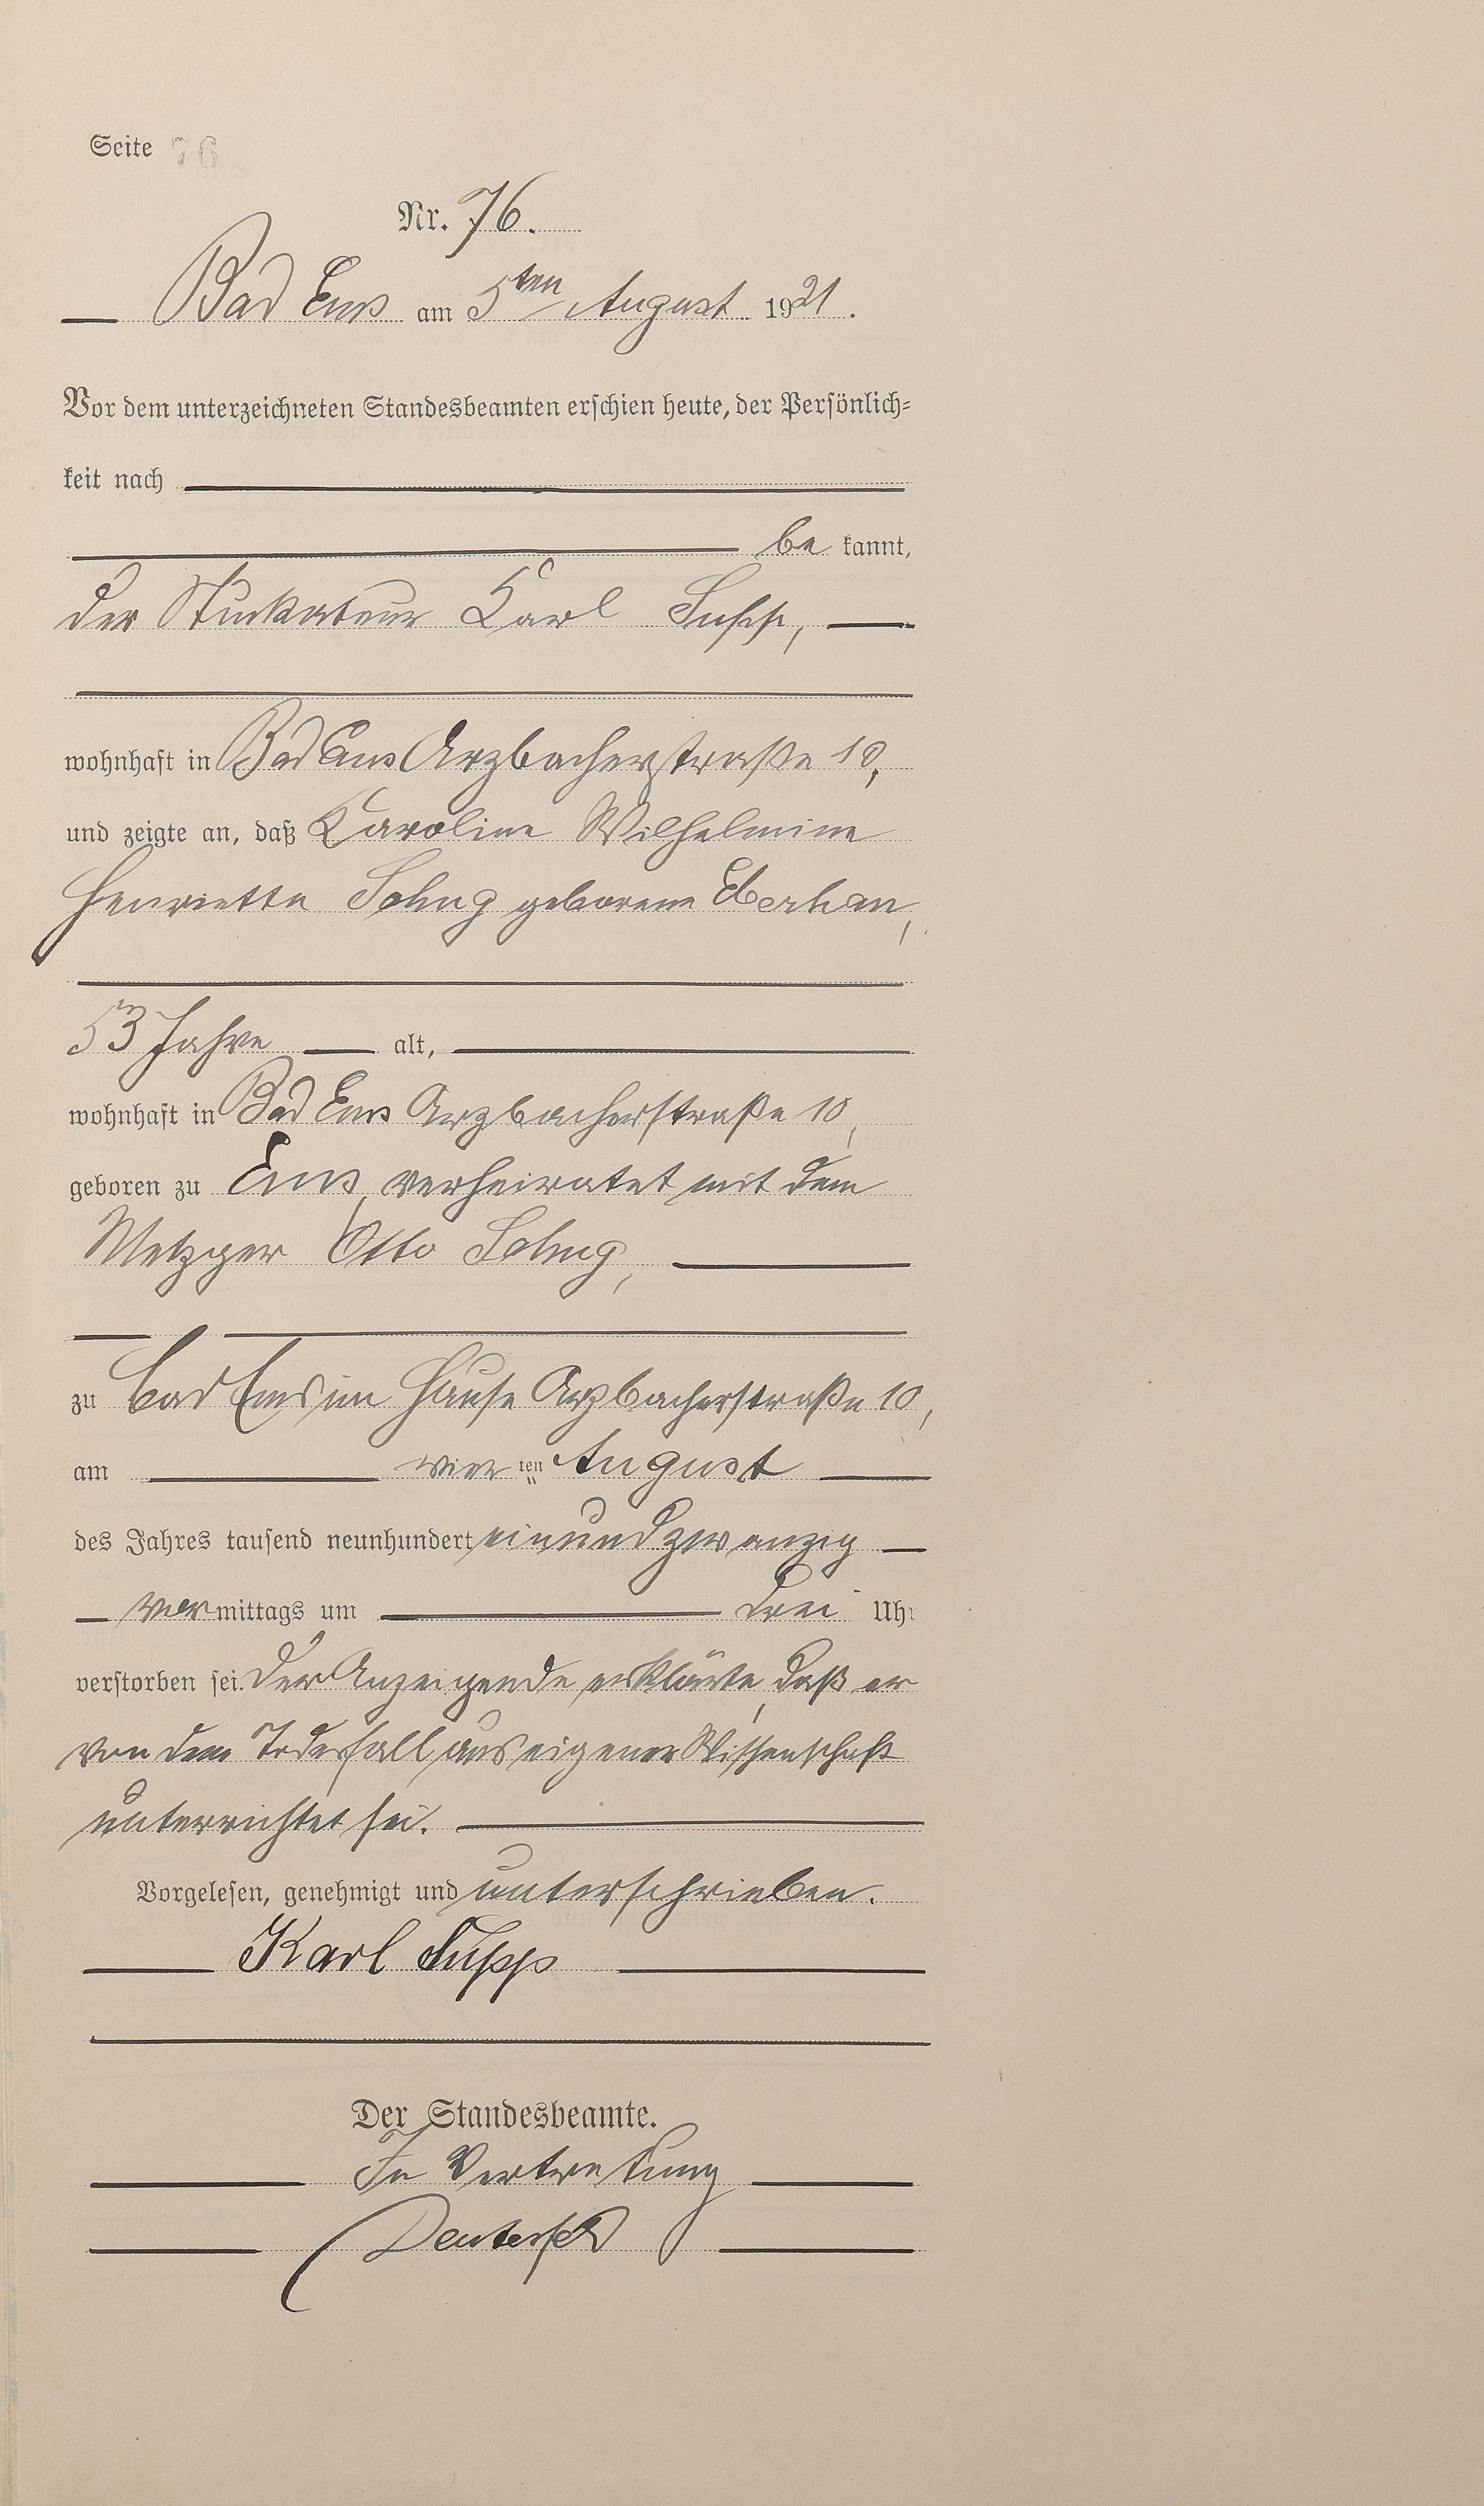 Seite 76
Nr. 76.
Bad Ems am 5ten August 1921.
Vor dem unterzeichneten Standesbeamten erschien heute, der Persönlich-
keit nach
be kannt,
der Stuckateur Karl Supp,
wohnhaft in Bad Ems Arzbacherstraße 10,
und zeigte an, daß Karoline Wilhelmine
Henriette Sohng geborene
53 Jahre alt,
wohnhaft in Bad Ems Arzbacherstraße 10,
geboren zu Ems, verheiratet mit dem
Metzger Otto Sohng,
zu Bad Ems im Hause Arzbacherstraße 10,
am vier ten August
des Jahres tausend neunhundert einundzwanzig
vormittags um drei Uhr
verstorben sei. Der Anzeigende erklärte, daß er
von dem Todesfall aus eigener Wissenschaft
unterrichtet sei.
Vorgelesen, genehmigt und unterschrieben.
Karl Supp
Der Standesbeamte.
In Vertretung